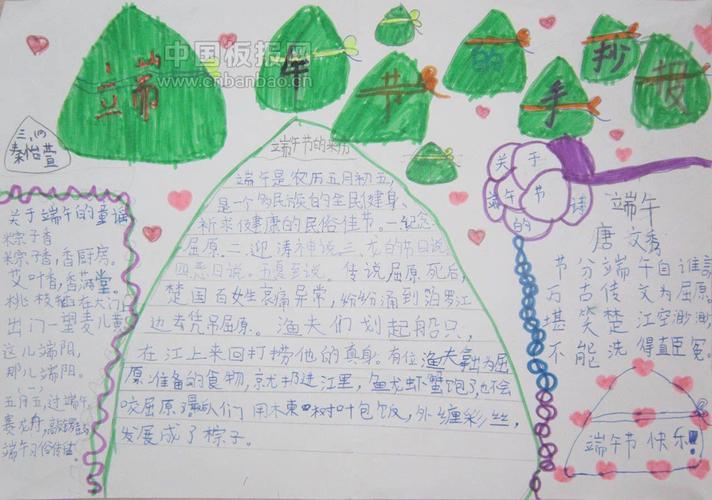 端午节的手抄报
中国板报网
www.cnbanbao.cn
三、四
秦怡萱
关于端午的童谣
粽子香
粽子香，香厨房。
艾叶香，香满堂。
桃枝插在大门
出门一望麦儿黄
这儿端阳，
那儿端阳。
（二）
五月五，过端午，
赛龙舟，
端午习俗
端午节的来历
端午是农历五月初五，
是一个多民族的全民健身、
祈求健康的民俗佳节。一纪念
屈原、二、迎涛神说、三、龙的节日说、
四、恶日说、五、夏至说、传说屈原死后，
楚国百姓哀痛异常，纷纷涌到汨罗江
边去凭吊屈原。渔夫们划起船只，
在江上来回打捞他的真身。有位渔夫拿出为屈
原准备的食物，就扔进江里，鱼龙虾蟹饱了也不会
咬屈原了。人们用楝树叶包饭，外缠彩丝，
发展成了棕子。
关于
端午节诗
的
端午
唐文秀
节分端午自谁言
万古传文为屈原。
堪笑楚江空渺渺
不能洗得直臣冤。
端午节快乐！